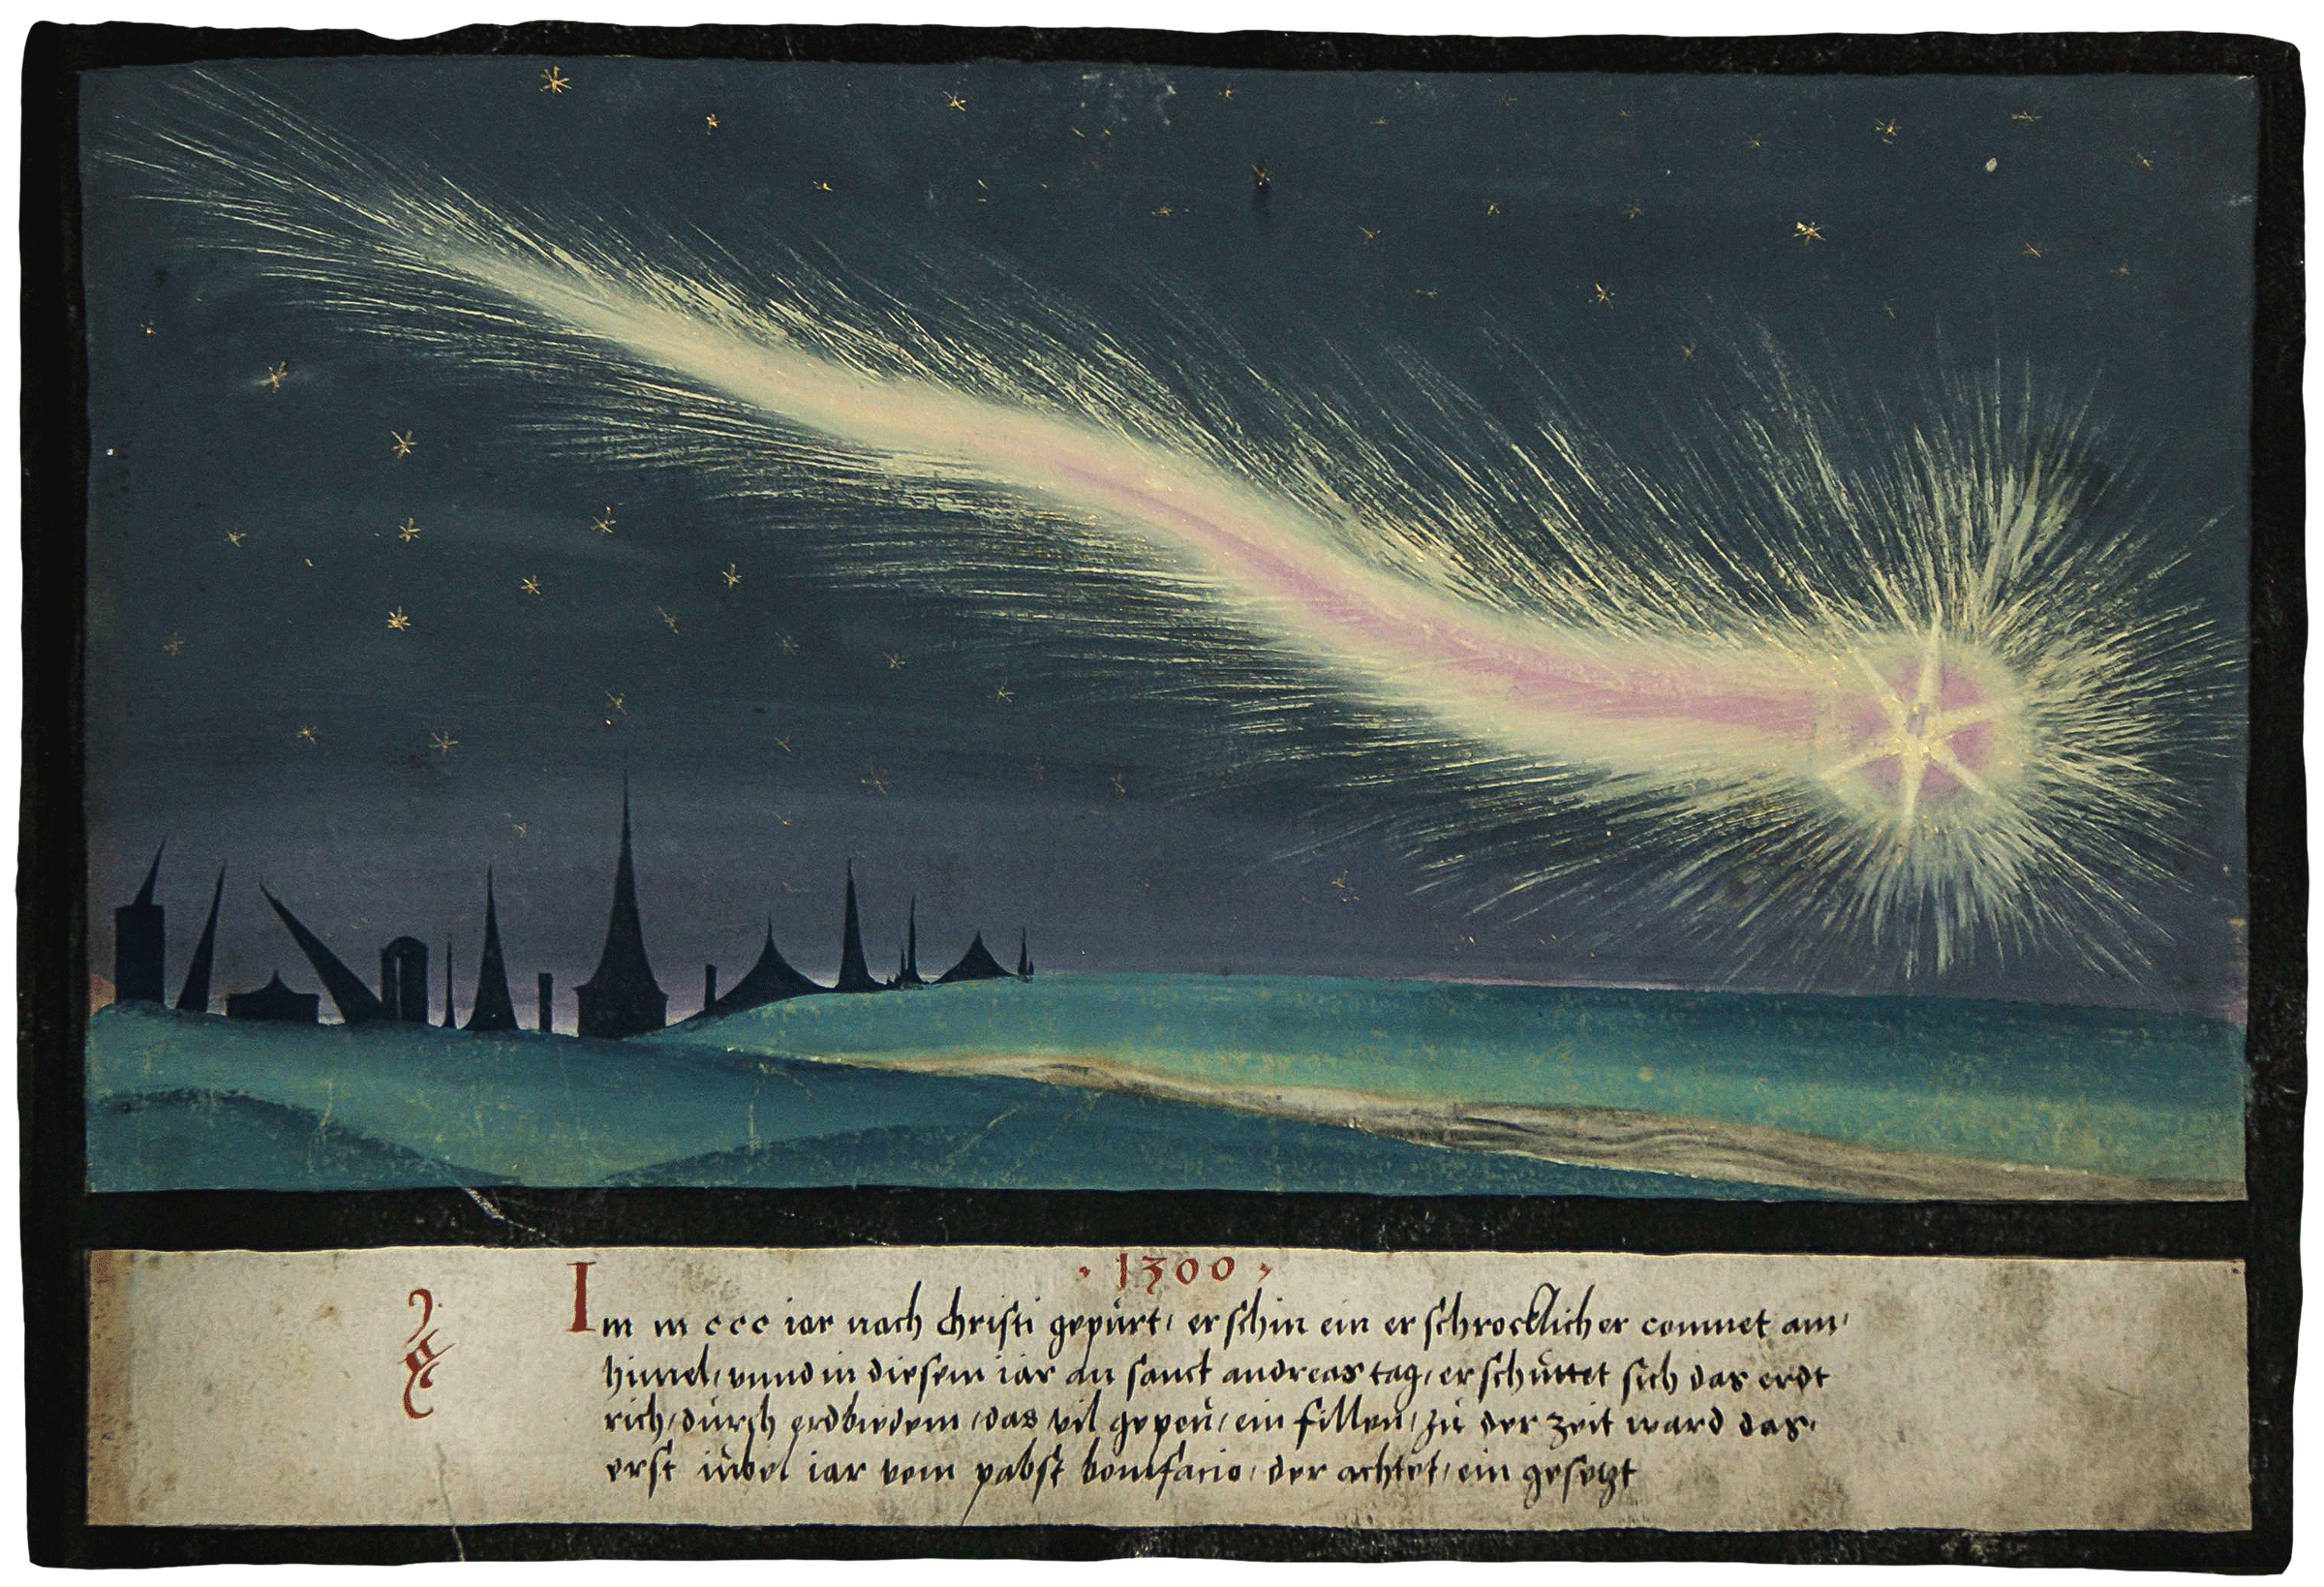 · 1300 ·
Im m ccc iar nach christi gepürt, erschin ein erschrocklicher commet am,
himel, vnnd in diesem iar an sanct andreas tag, erschüttet sich das erdt
rich, dürch erdbidem, das vil gepeü, ein fillen, zü der zeit ward das,
erst iübel iar vom pabst bonifacio, der achtet, ein gesetzt